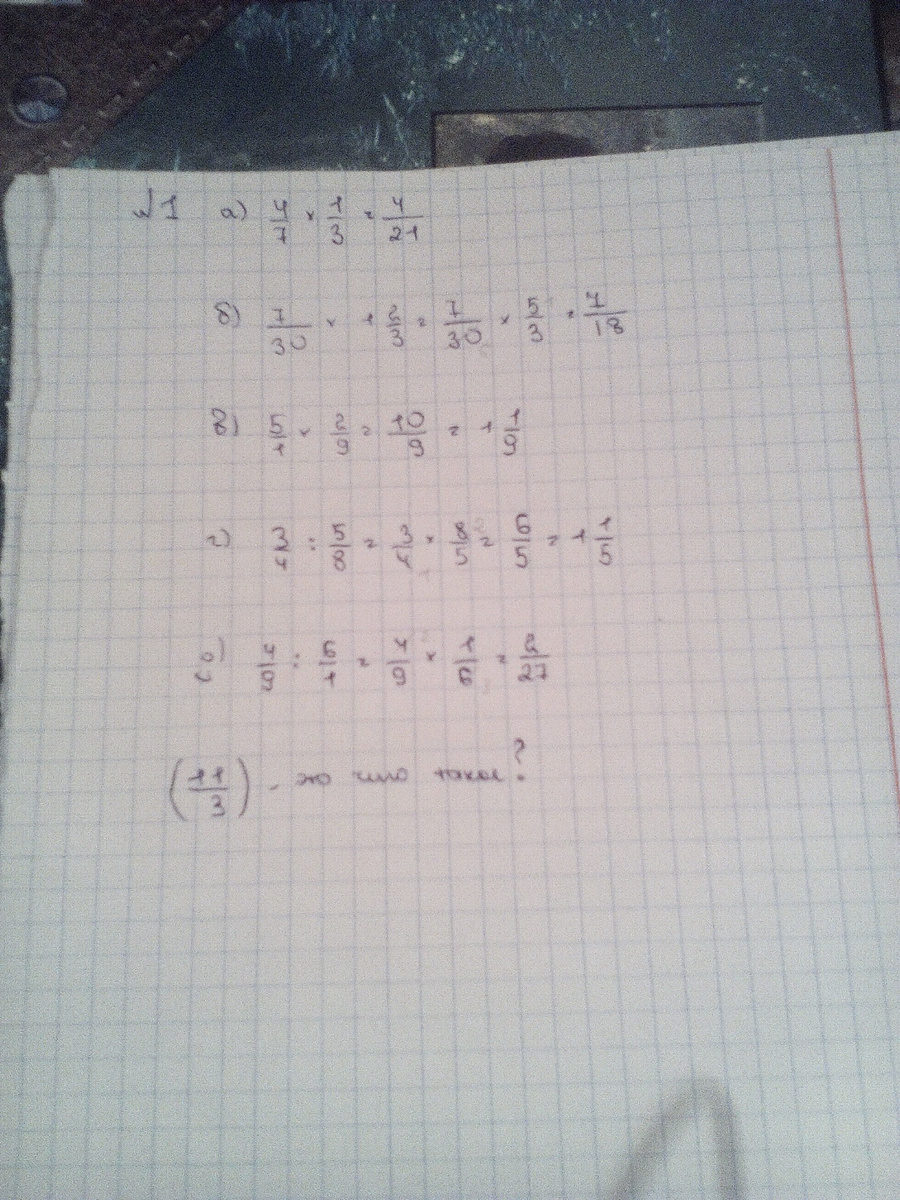 №1 а) 4/7 × 1/3 = 4/21
б) 7/30 × 1 2/3 = 7/30 × 5/3 = 7/18
в) 5/1 × 2/9 = 10/9 = 1 1/9
г) 3/4 : 5/8 = 3/4 × 8/5 = 6/5 = 1 1/5
д) 4/9 : 6/1 = 4/9 × 1/6 = 2/27
(11/3) - это что такое?